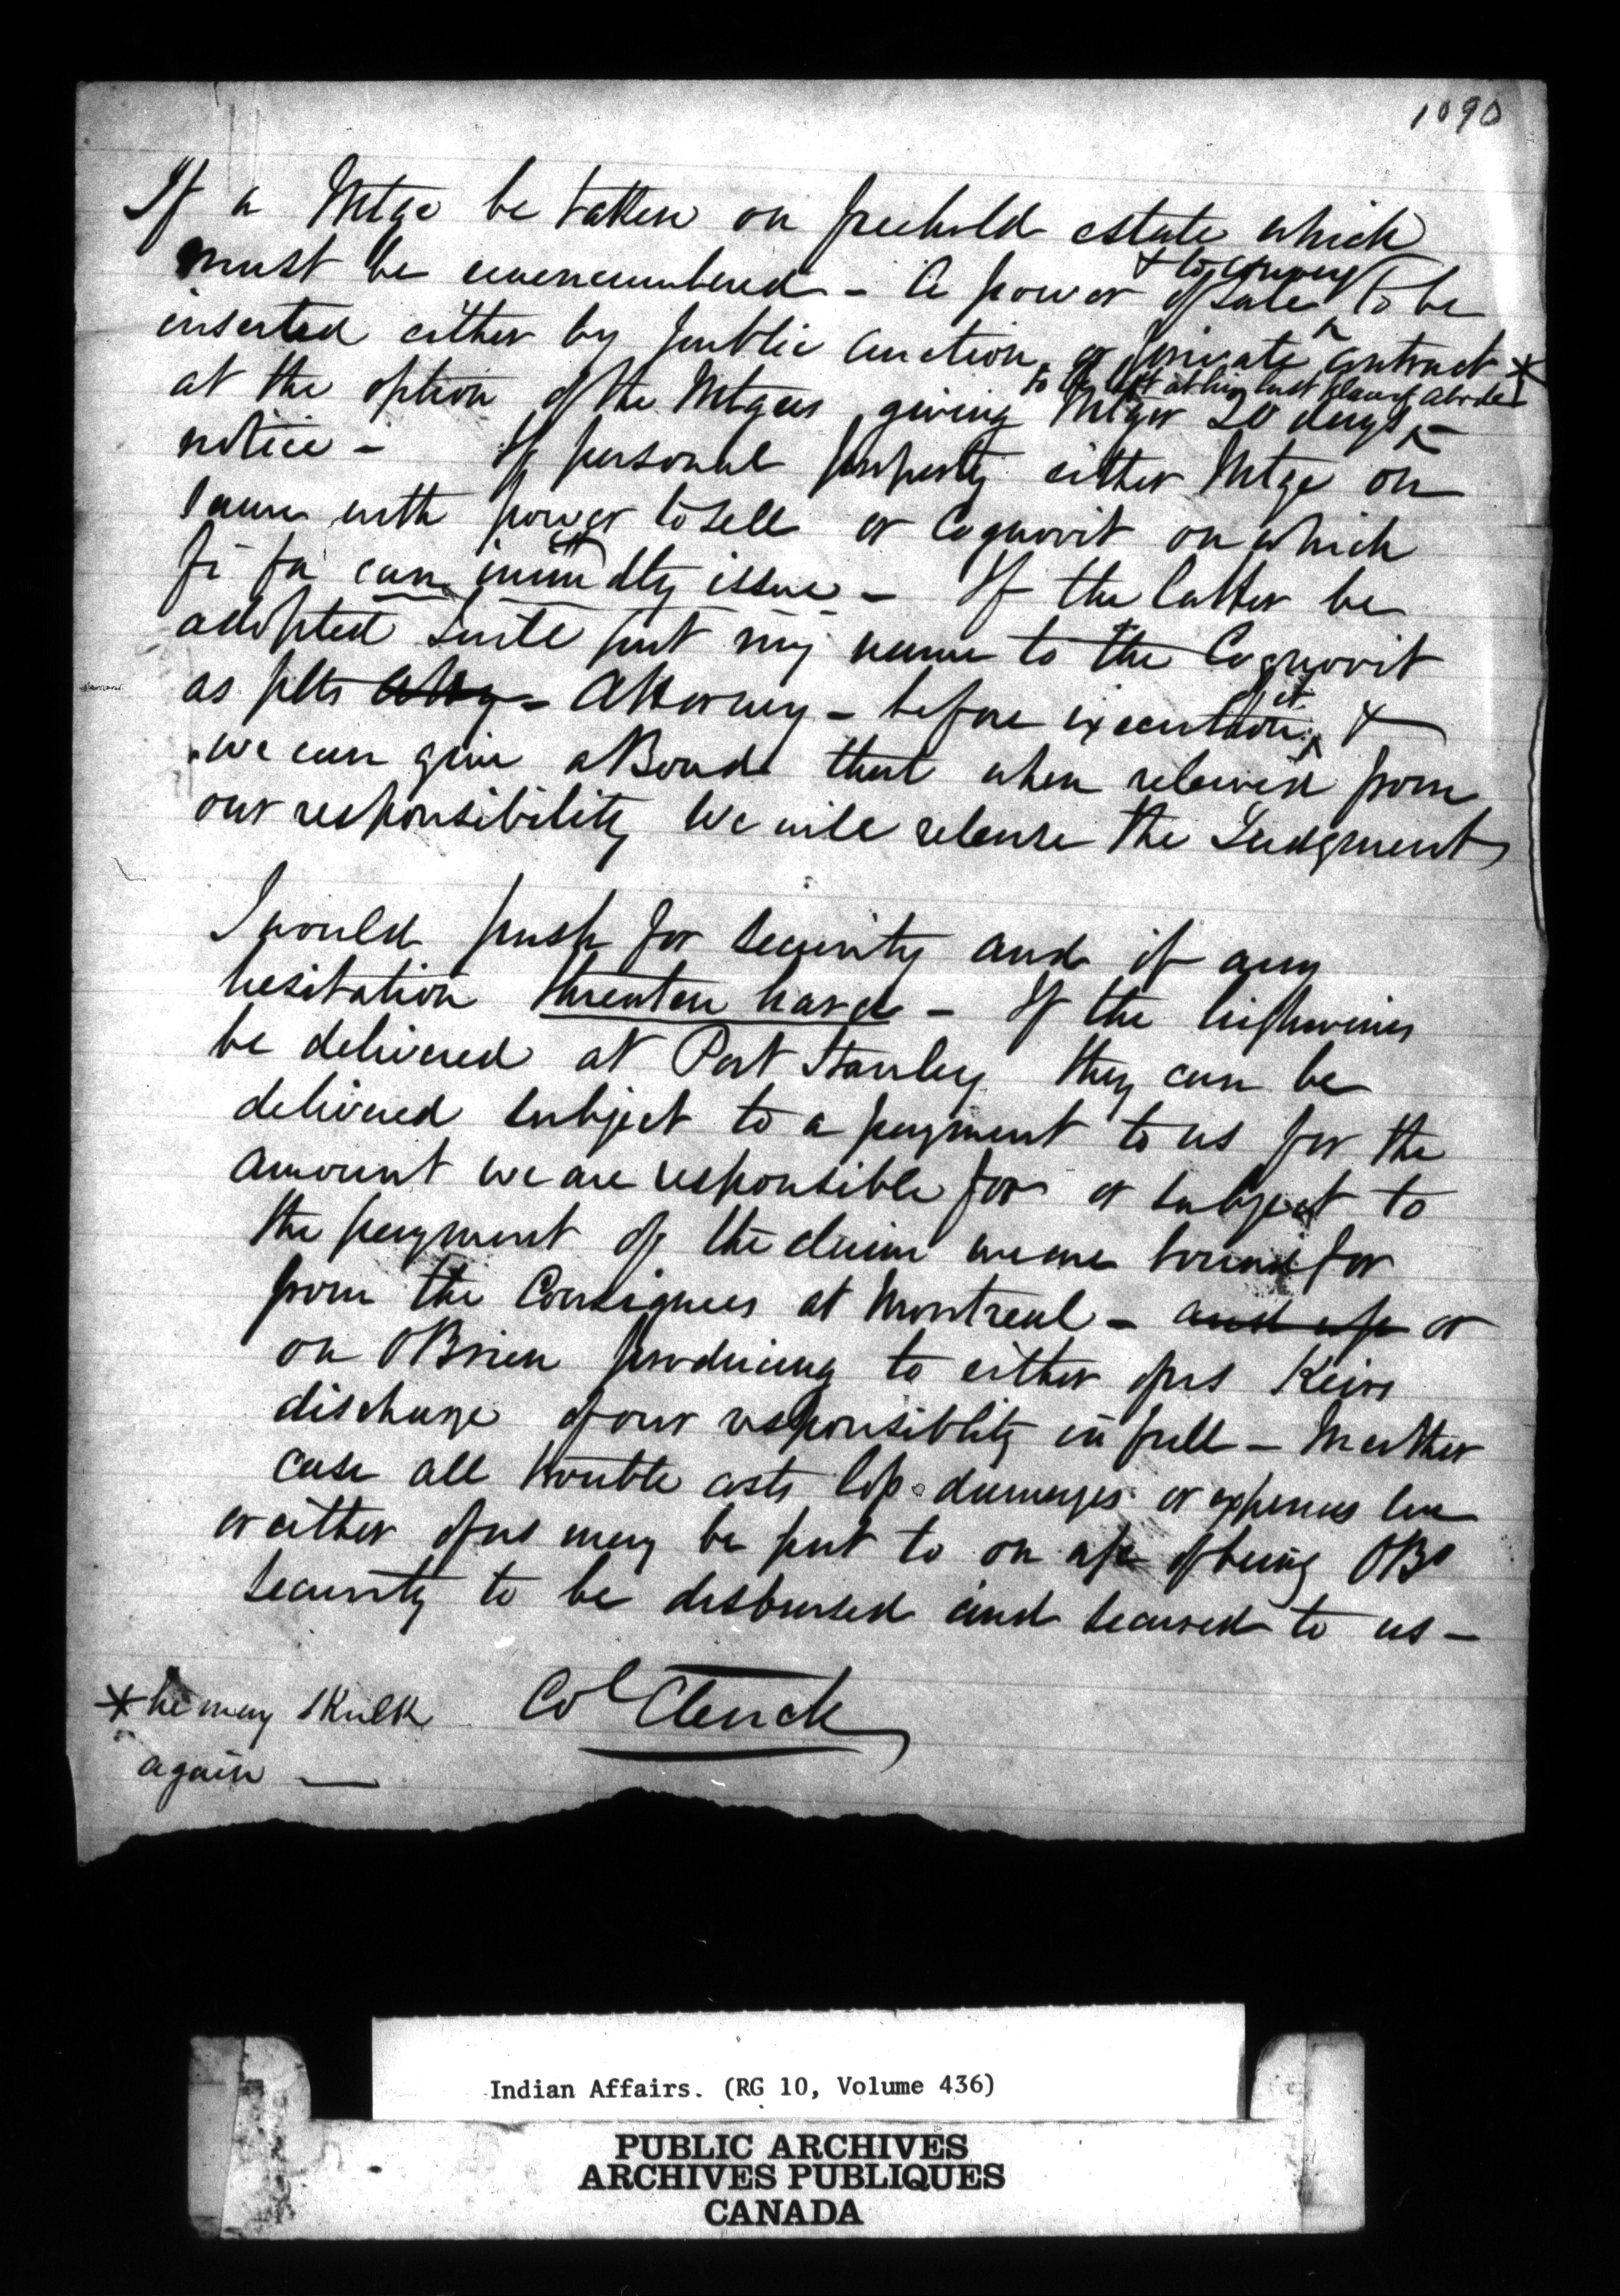 1090
If a Mtge be taken on freehold estate which
must be unencumbered - A power of Sale & to convey to be
inserted either by public auction or private contract *
at the option of the Mtgees giving Mtgor 20 days to be left at his last place of abode
notice - If personal property either Mtge on
same with power to sell or Cognovit on which
fi fa can immdtly issue - If the latter be
adopted put my name to the Cognovit
as plts Atty - Attorney - before execution of it &
we can give a Bond that when relieved from
our responsibility We will release the Judgment
I would push for security and if any
hesitation threaten hard - If the highwines
be delivered at Port Stanley they can be
delivered subject to a payment to us for the
amount we are responsible for or subject to
the payment of the claim we are bound for
from the Consignees at Montreal - or
on OBrien producing to either of us
discharge of our responsiblity in full - In either
case all trouble costs loss damages or expenses we
or either of us may be put to on a/c of being OBs
security to be disbursed and secured to us -
* he may skulk
again —
Col Clench
Indian Affairs. (RG 10, Volume 436)
PUBLIC ARCHIVES
ARCHIVES PUBLIQUES
CANADA